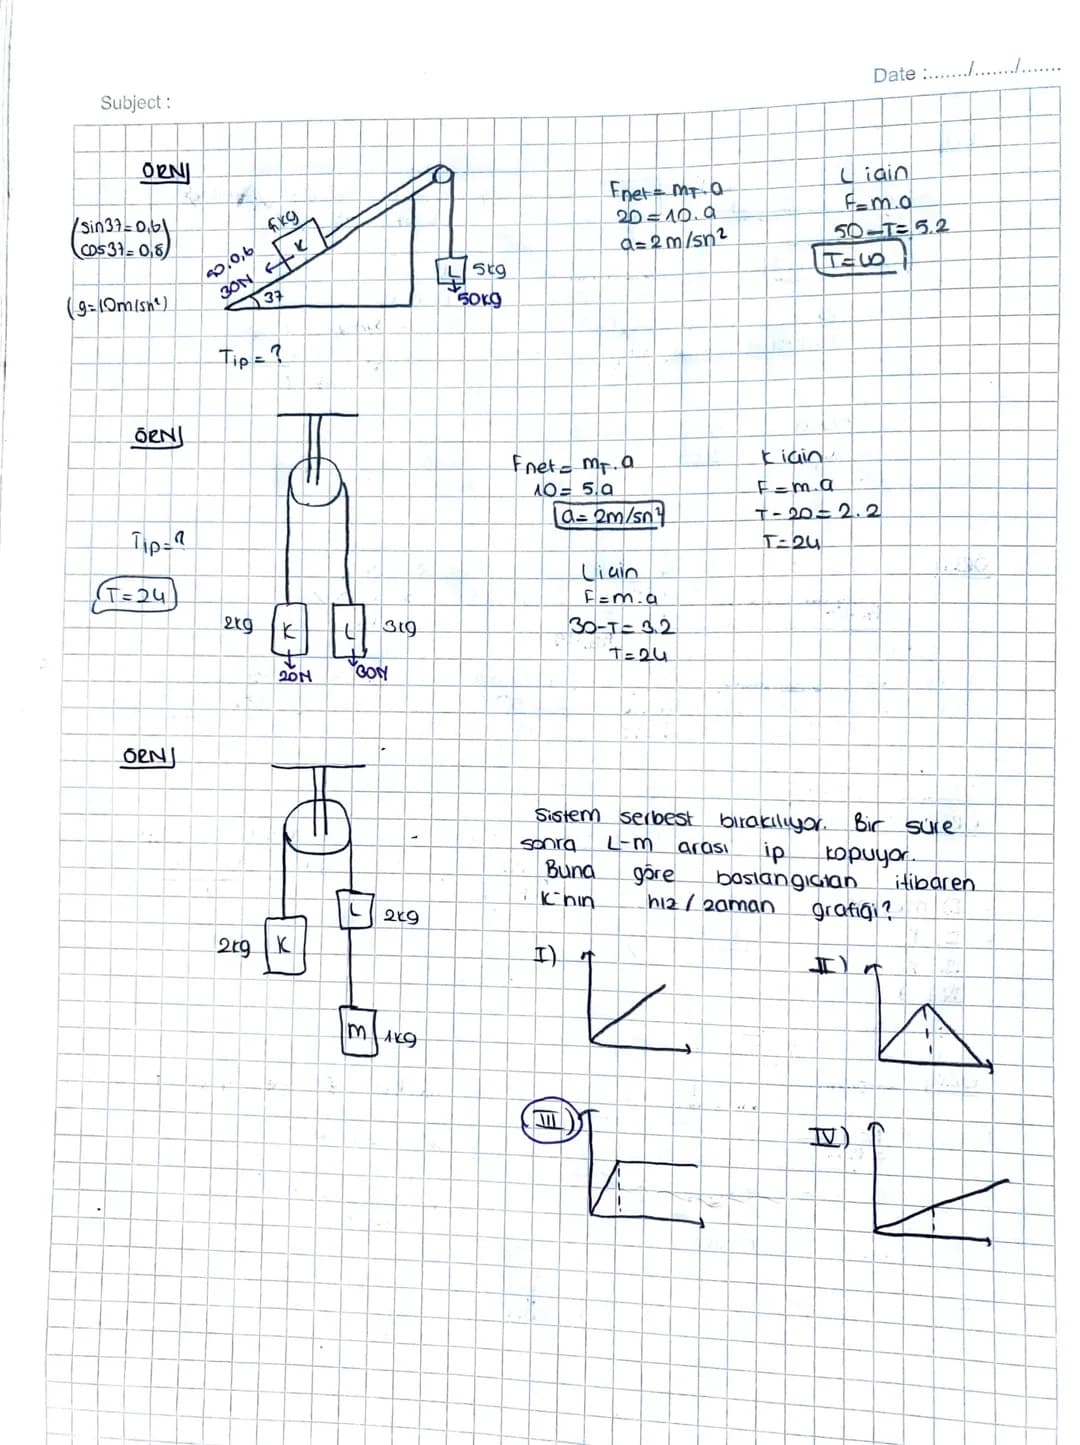 Date :......./......./.......
Subject :
ÖRN/
(sin37=0,6)
(cos37=0,8)
(g=10m/sn²)
50.0,6
30N
K
37
L 5kg
50kg
Tip=?
Fnet = mT.a
20=10.a
a=2m/sn²
L için
F=m.a
50-T=5.2
ÖRN/
Tip=?
T=24
2kg K
20N
L 3kg
30N
Fnet = mT.a
10= 5.a
a= 2m/sn²
L için
F=m.a
30-T= 3.2
T=24
K için
F=m.a
T-20=2.2
T=24
ÖRN/
2kg K
L 2kg
m 1kg
Sistem serbest bırakılıyor. Bir süre
sonra L-m arası ip kopuyor.
Buna göre baslangıctan itibaren
K'nın hız / zaman grafiği?
I)
II)
III)
IV)